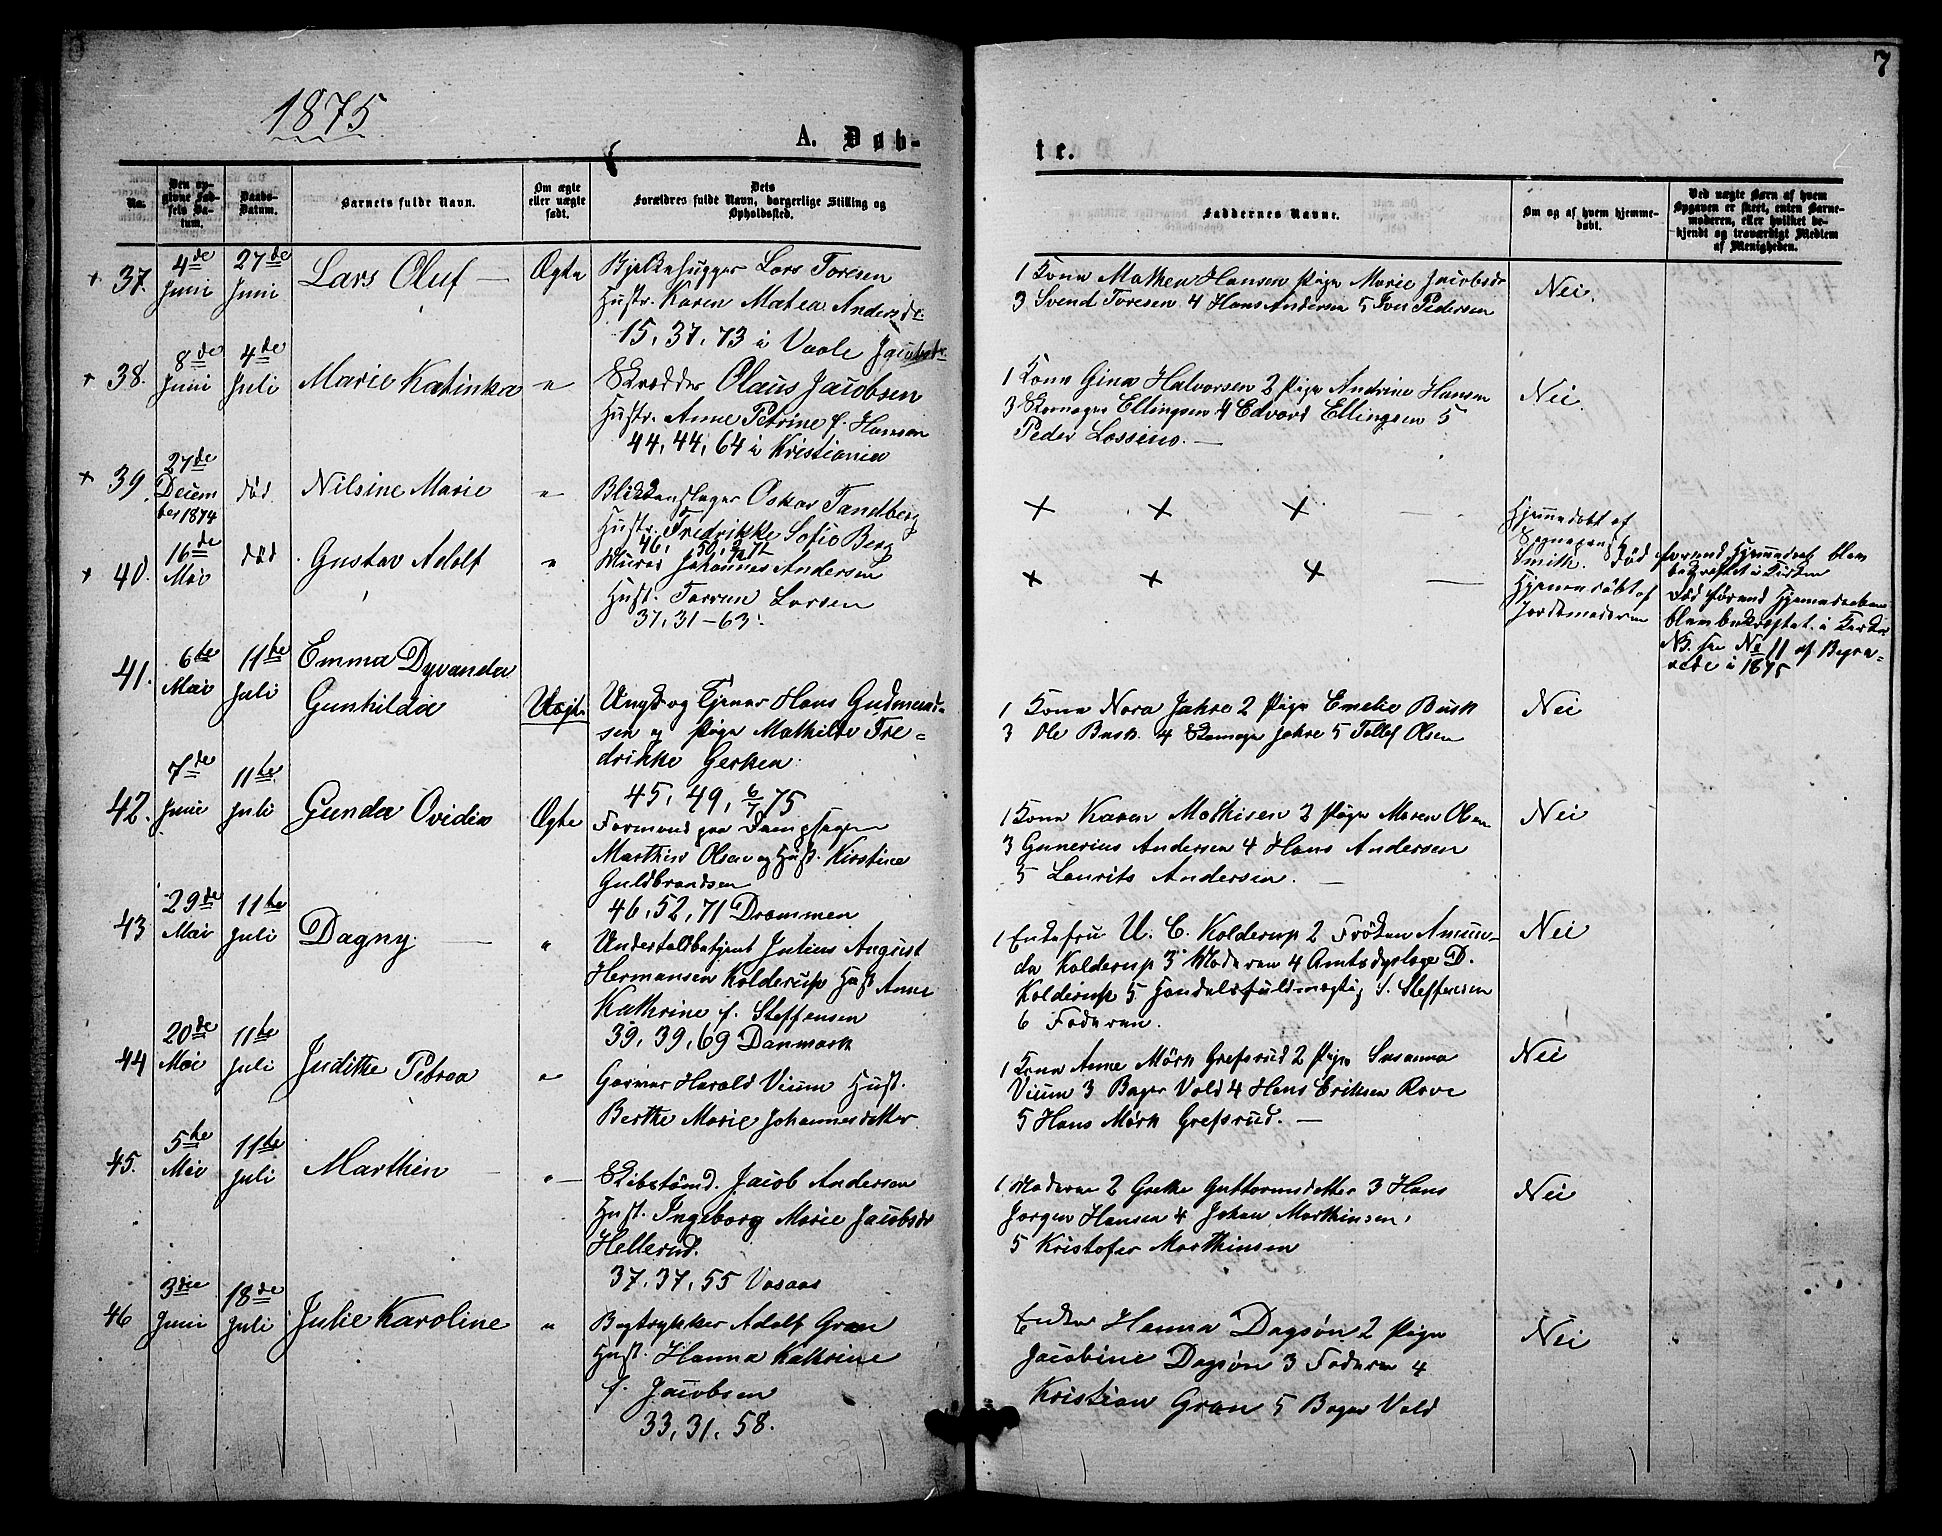 1875
A. Døb-
No.
Den opgivne Fødsels Datum.
Daabs-Datum.
Barnets fulde Navn.
Om ægte eller uægte født.
Dets Forældres fulde Navn, borgerlige Stilling og Opholdssted.
37.
4de Juni
27de Juni
Lars Oluf
Ægte
Bjelkehugger Lars Toresen
Hustr. Karen Matea Andersdr.
15, 37, 73 i Vaale
38.
8de Juni
4de Juli
Marie Katinka
"
Skrædder Olaus Jacobsen
Hustr. Anne Petrine f. Hansen
44, 44, 64 i Kristiania
39.
27de Decem
ber 1874
død
Nilsine Marie
"
Blikkenslager Oskar Tandberg
Hustr. Fredrikke Sofie Berg
46, 50,
40.
16de Mai
død
Gustav Adolf
"
Murer Johannes Andersen
Hust. Torren Larsen
37, 31 – 63.
41.
6te Mai
11te Juli
Emma Dyvanda
Gunhilda
Uægt.
Ungk. og Tjener Hans Gudmund-
sen og Pige Mathilde Fre-
drikke Gerken
45, 49, 6/7 75
42.
7de Juni
11te Juli
Gunda Ovidia
Ægte
Formand paa Dampsagen
Marthin Olsen og Hust. Kirstine
Guldbrandsen
46, 52, 71 Drammen
43
29de Mai
11te Juli
Dagny
"
Undertoldbetjent Julius August
Hermansen Kolderup Hust Anne
Kathrine f. Steffensen
39, 39, 69 Danmark
44
20de Mai
11te Juli
Judithe Petrea
"
Garver Harald Vium Hust.
Berthe Marie Johannesdatter
45.
5te Mai
11te Juli
Marthin
"
Skibstømd. Jacob Andersen
Hust. Ingeborg Marie Jacobsdr
Hellerud.
37, 37, 55 Vasaas
46
3die Juni
18de Juli
Julie Karoline
"
Bogtrykker Adolf Gran
Hust. Hanna Kathrine
f. Jacobsen
33, 31, 58.
7
te.
Faddernes Navne.
Om og af hvem hjemmedøbt.
Ved uægte Børn af hvem Opgaven er skeet, enten Barnemoderen, eller hvilket bekjendt og troværdigt Medlem af Menigheden.
1 Kona Mathea Hansen Pige Marie Jacobsdr
3 Svend Toresen 4 Hans Andersen 5 Iver Pedersen
Nei.
1 Kona Gina Halvorsen 2 Pige Andrine Hansen
3 Skomager Ellingsen 4 Edvard Ellingsen 5
Peder Lossius.
Nei.
Hjemmedøbt af
Sognepræst
Smith. Død forend Hjemmedaab blev
bekræftet i Kirken
Hjemmedøbt af
Jordemoderen
Død førend Hjemmedaaben
blev bekræftet i Kirken
NB. se No 11 af Begra-
vede i 1875
1 Kona Nora Jahre 2 Pige Emelie Busk
3 Ole Busk 4 Skomager Jahre 5 Tollef Olsen
Nei
1 Kona Karen Mathisen 2 Pige Maren Olsen
3 Gunerius Andersen 4 Hans Andersen
5 Laurits Andersen.
Nei
1 Enkefru U. C. Kolderup 2 Frøken Amun-
da Kolderup 3 Moderen 4 Amtsdyrlæge D.
Kolderup 5 Handelsfuldmægtig S. Steffensen
6 Faderen.
Nei
1 Kona Anne Mørk Grefsrud 2 Pige Susanna
Vium 3 Bager Vold 4 Hans Eriksen Rove
5 Hans Mørk Grefsrud.
Nei
1 Moderen 2 Grethe Guttormsdatter 3 Hans
Jørgen Hansen 4 Johan Marthinsen,
5 Kristofer Marthinsen
Nei
Enken Hanna Dagsøn 2 Pige
Jacobine Dagsøn 3 Faderen 4
Kristian Gran 5 Bager Vold
Nei